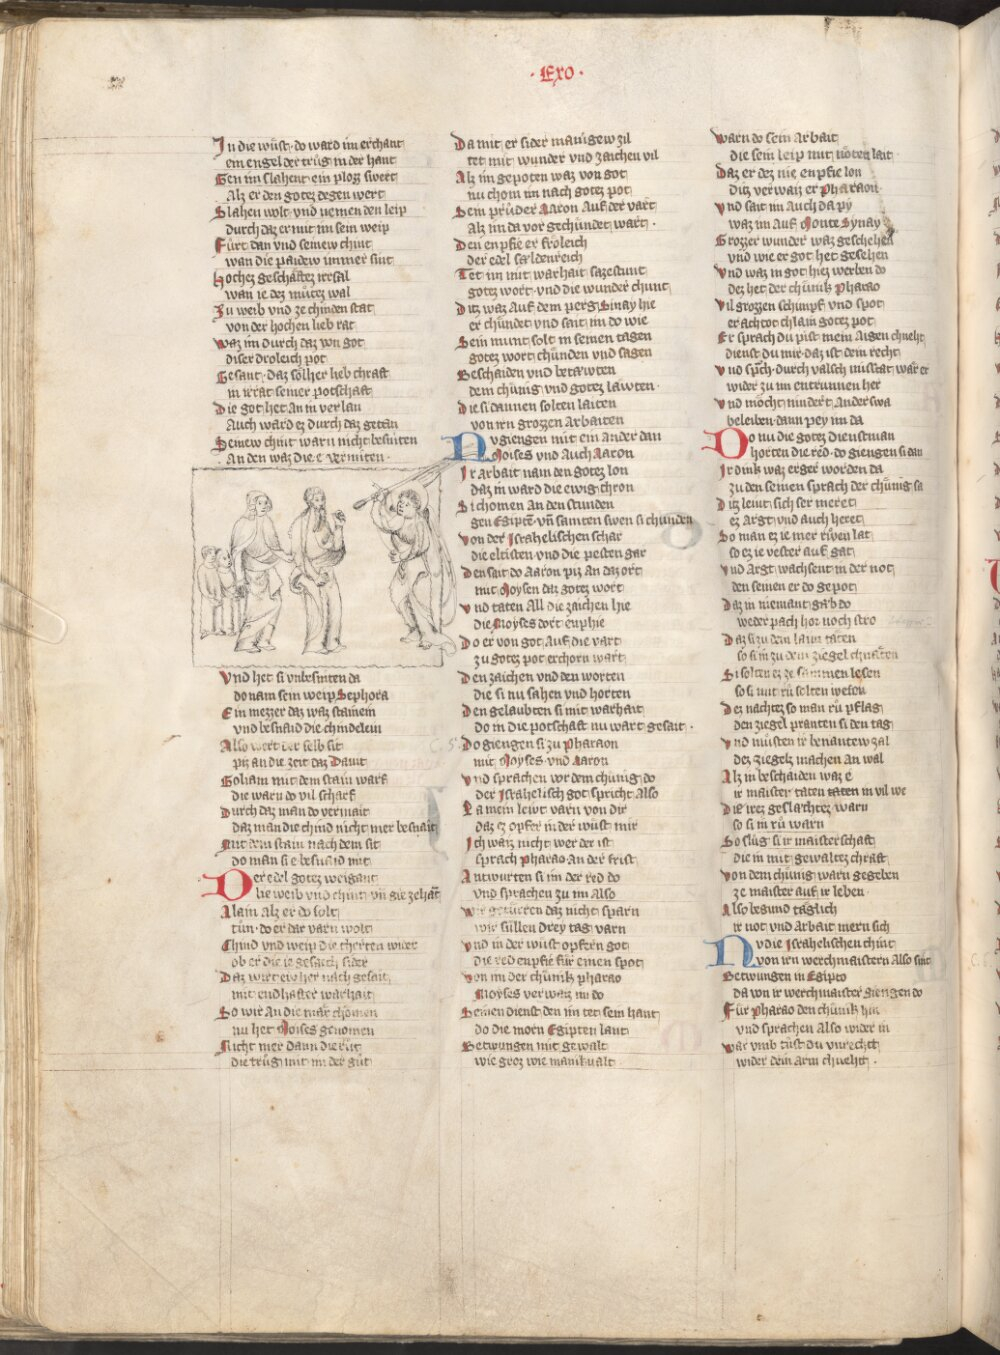 · Exo ·
In die wůst · do ward im erchant
ein engel der trůg in der hant
Gen im slahent ein plozz swert
Alz er den gotez degen wert
Slahen wolt · vnd nemen den leip
durch daz er mit im sein weip
Fůrt dan vnd seinew chint
wan die paidew immer sint
Hochez geschäftez irrsal
wan ie dez můtez wal
Zu weib vnd ze chinden stat
von der hochen lieb rat
Waz im durch daz von got
diser droleich pot
Gesant · daz sölher lieb chraft
in irrat seiner potschaft
Die got het an in verlan
Auch ward ez durch daz getan
Seinew chint warn nicht besniten
An den waz die e vermiten ·
Vnd het si vnbesniten da
do nam sein weip Sephora
Ein mezzer daz waz stainein
vnd besnaid die chindelein
Also wert der selb sit
piz an die zeit daz Dauit
Goliam mit dem stain warf
die warn do vil scharf
Durch daz man do vermait
daz man die chind nicht mer besnait
Mit dem stain nach dem sit
do man si e besnaid mit
Der edel gotez weigant
lie weib vnd chint vñ gie zehant
Alain alz er do solt
tůn · do er dar varn wolt
Chind vnd weip die cherten wider
ob er die ie gesach sider
Daz wirt ew her nach gesait
mit endhafter warhait
So wir an die mär chomen
nu het Moises genomen
Nicht mer dann die růt
die trůg im in der gůt
Da mit er sider manigew zil
tet mit wunder vnd zaichen vil
Alz im gepoten waz von got
nu chom im nach gotez pot
Sein průder Aaron auf der vart
Alz im da vor gechůndet wart ·
Den enpfie er frőleich
der edel sældenreich
Tet im mit warhait sazestunt
gotez wort · vnd die wunder chunt
Ditz waz auf dem perg Sinay hie
er chůndet vnd sait im do wie
Sein munt solt in seinen tagen
gotez wort chůnden vnd sagen
Bescheiden vnd betäwten
dem chůnig vnd gotez läwten ·
Die si dannen solten laiten
von irn grozzen arbaiten
Nu giengen mit ein ander dan
Moises vnd auch Aaron
Ir arbait nam den gotez lon
daz in ward die ewig chron
Si chomen an den stunden
gen Egipt · vñ samten swen si chunden
Von der Israhelischen schar
die eltisten · vnd die pesten gar
Den sait do Aaron piz an daz ort
mit Moysen daz gotez wort
Vnd taten all die zaichen hie
die Moyses dort enphie
Do er von got auf die vart
zu gotez pot erchorn wart
Den zaichen vnd den worten
die si nu sahen vnd horten
Den gelaubten si mit warhait
do in die potschaft nu wart gesait ·
Do giengen si zu Pharaon
mit Moyses vnd Aaron
Vnd sprachen vor dem chůnig do
der Israhelisch got spricht also
La mein lewt varn von dir
daz ez opfer in der wůst mir
Ich waiz nicht wer der ist
sprach Pharao an der frist
Antwurten si im der red do
vnd sprachen zu im also
wir sůllen drey tag varn
Vnd in der wůst opfern got
die red enpfie für einen spot
Von im der chůnik Pharao
Moyses verwaiz im do
Seinen dienst den im tet sein hant
do die morn Egipten lant
Betwungen mit gewalt
wie groz wie manikualt
Warn do sein arbait
die sein leip mit nőten lait
Daz er dez nie enpfie lon
ditz verwaiz er Pharaon
Vnd sait im auch da py
waz im auf Monte Synay
Grozzer wunder waz geschehen
vnd wie er got het gesehen
Vnd waz in got hiez werben do
dez het der chůnik Pharao
Vil grozzen schimpf vnd spot
er achtot chlain gotez pot
Er sprach du pist mein aigen chneht
dienst du mir daz ist dein recht
Vnd sprich · durch valsch missetat wär er
wider zu im entrunnen her
Vnd möcht nindert anderswa
beleiben · dann pey im da
Do nu die gotez dienstman
horten die red · do giengen si dan
Ir dink waz erger worden da
zu den seinen sprach der chůnig sa
Ditz lewt sich ser meret
ez argt vnd auch heret
So man ez ie mer růwen lat
so ez ie vester auf gat
Vnd argt wachsent in der not
den seinen er do gepot
Daz in niemant gäb do
weder pach hor noch stro
Daz si zu dem laim täten
so si in zu dem ziegel chnäten
Si solten ez ze sammen lesen
so si mit rů solten wesen
Dez nachtez so man rů pflag
den ziegel pranten si den tag
Vnd můsten ir benantew zal
dez ziegelz machen an wal
Alz in bescheiden waz e
ir maister taten taten in vil we
Die irez geslächtez warn
so si in rů warn
So slůg si ir maisterschaft
die in mit gewaltez chraft
Von dem chůnig warn gegeben
ze maister auf ir leben ·
Also begund täglich
ir not vnd arbait mern sich
Nu die Israhelischen chint
von irn werchmaistern also sint
Betwungen in Egipto
da von ir werchmaister giengen do
Für Pharao den chůnik hin
vnd sprachen also wider in
War vmb tůst du vnrecht
wider dein arm chneht ·